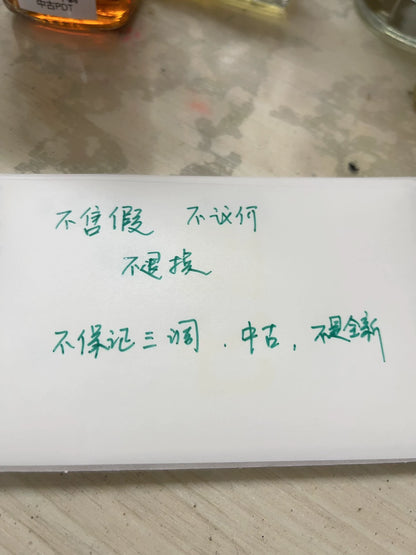 中古PDT
不售假 不议价
不退换
不保证三调.中古,不是全新